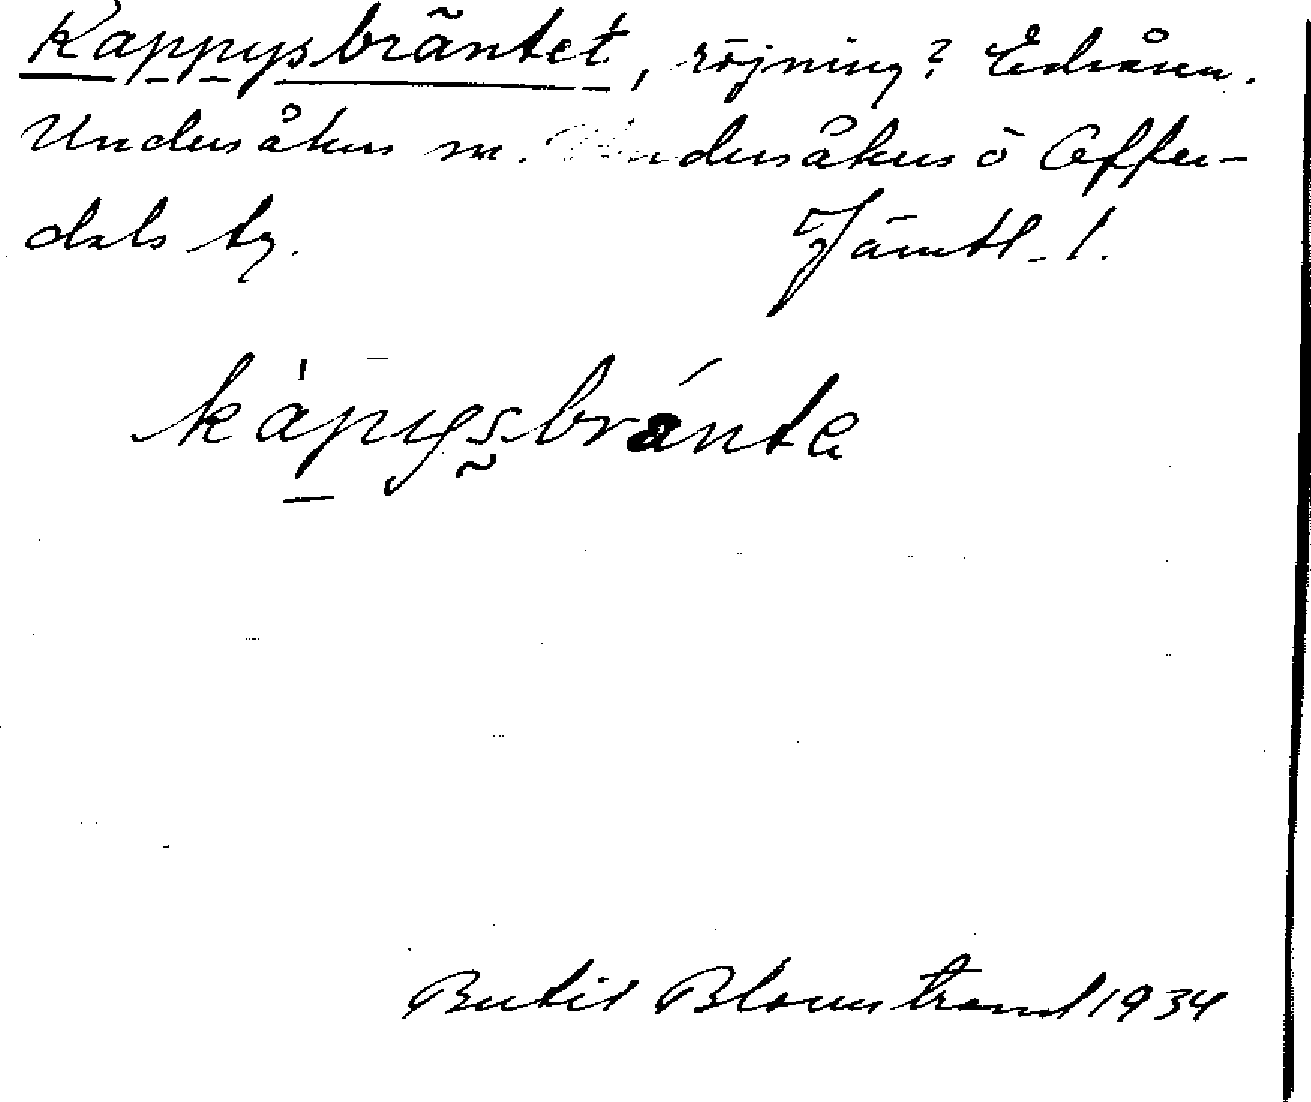 Kappysbräntet, röjning? Edsåsen.
Undersåkers sn. Undersåkers o Offer-
dals tg. Jämtl. l.
kàpysbránta
Bertil Blomstrand 1934